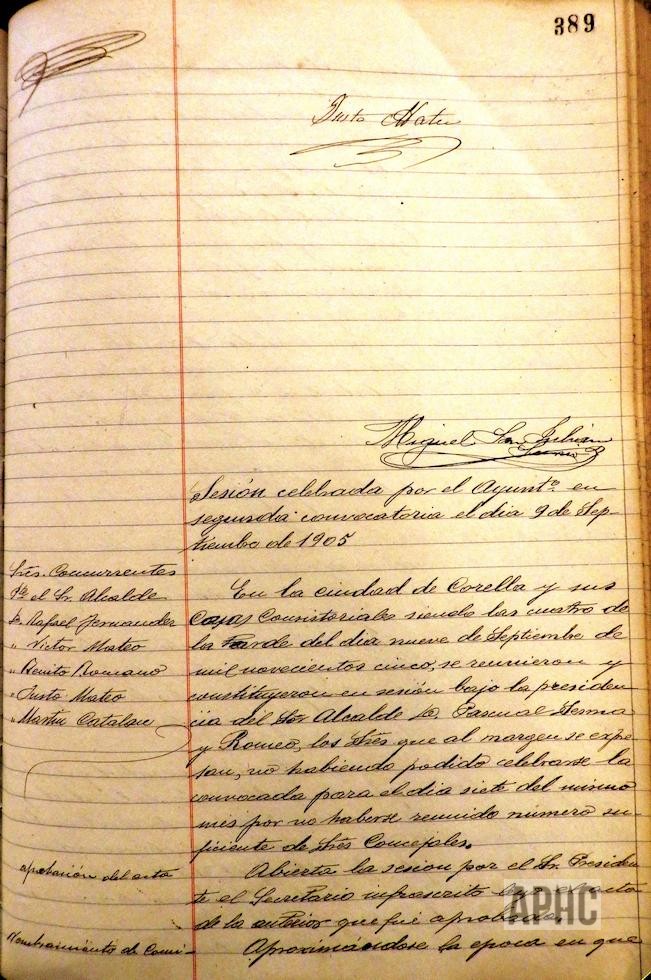 389
Justo Mateo
Miguel San Julian
Sesión celebrada por el Ayuntº. en
segunda convocatoria el dia 9 de Sep-
tiembre de 1905
Sres. Concurrentes
Pte el Sr. Alcalde
D. Rafael Fernandez
" Victor Mateo
" Benito Romano
" Justo Mateo
" Martin Catalan
En la ciudad de Corella y sus
Casas Consistoriales siendo las cuatro de
la tarde del dia nueve de Septiembre de
mil novecientos cinco, se reunieron y
constituyeron en sesión bajo la presiden-
cia del Sor Alcalde D. Pascual Serma
y Romeo, los Sres que al margen se expe-
san, no habiendo podido celebrarse la
convocada para el dia siete del mismo
mes por no haberse reunido número su-
ficiente de Sres Concejales.
aprobación del acta
Abierta la sesion por el Sr. Presiden-
te el Secretario infrascrito acta
de la anterior que fué aprobada.
Nombramiento de Comi-
Aproximándose la epoca en que
APHC